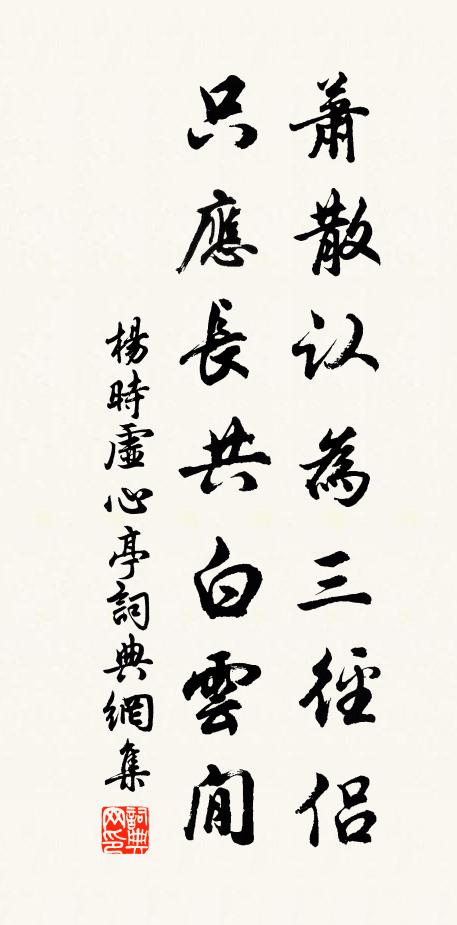 蕭散认為三徑侣
只應長共白雲閒
楊時虛心亭詞典網集
詞典网印